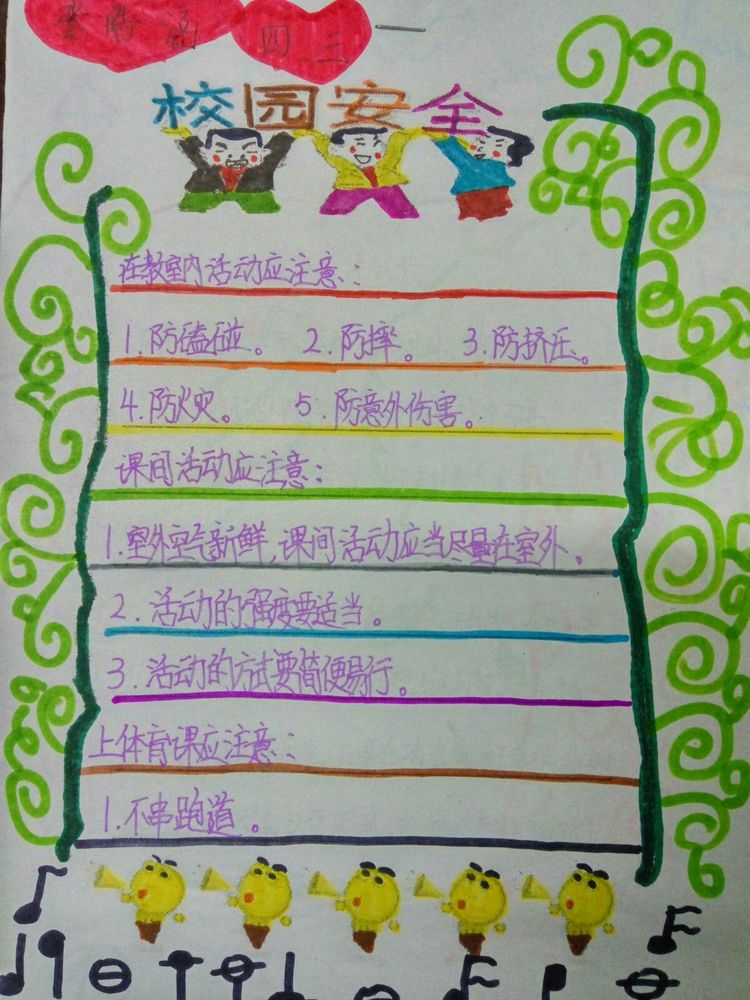 涵 四三
校园安全
在教室内活动应注意:
1.防磕碰。 2.防摔。 3.防挤压。
4.防火灾。 5.防意外伤害。
课间活动应注意:
1.室外空气新鲜,课间活动应当尽量在室外。
2.活动的强度要适当。
3.活动的方式要简便易行。
上体育课应注意:
1.不串跑道。